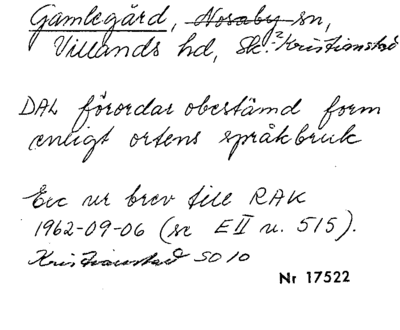 Gamlegård, Nosaby sn,
Villands hd, Sk. Kristianstad
DAL förordar obestämd form
enligt ortens språkbruk
Exc ur brev till RAK
1962-09-06 (se E II u. 515).
Kristianstad SO 10
Nr 17522